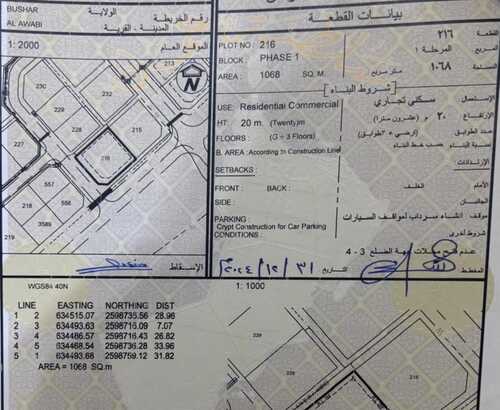 BUSHAR
الولاية
AL AWABI
المدينة - القرية
رقم الخريطة
1: 2000
الموقع العام
228
227
215
216
226
224
557
559
558
218
219
الإسقاط
بيانات القطعة
PLOT NO : 216
٢١٦
القطعة
BLOCK : PHASE 1
المرحلة ١
المربع
AREA : 1068 SQ. M.
متر مربع
١٠٦٨
المساحة
شروط البناء
USE: Residential Commercial
سكني تجاري
الإستعمال
HT: 20 m. (Twenty)m
٢٠ م (عشرون مترا)
الإرتفاع
FLOORS : (G + 3 Floors)
(أرضي + ٣ طوابق)
عدد الطوابق
B. AREA : According to Construction Line
حسب خط البناء
نسبة البناء
SETBACKS :
الإرتدادات
FRONT : BACK :
الخلف
الأمام
SIDE :
الجانبان
PARKING :
Crypt Construction for Car Parking
انشاء سرداب لمواقف السيارات
CONDITIONS :
شروط اخرى
عدم فتح محلات جهة الضلع 3 - 4
المخطط
التاريخ
٣١ / ١٢ / ٢٠٢٤م
WGS84 40N
1: 1000
LINE EASTING NORTHING DIST
1 2 634515.07 2598735.56 28.96
2 3 634493.63 2598716.09 7.07
3 4 634486.57 2598716.43 26.82
4 5 634468.54 2598736.28 33.96
5 1 634493.68 2598759.12 31.82
AREA = 1068 SQ.m
239
228